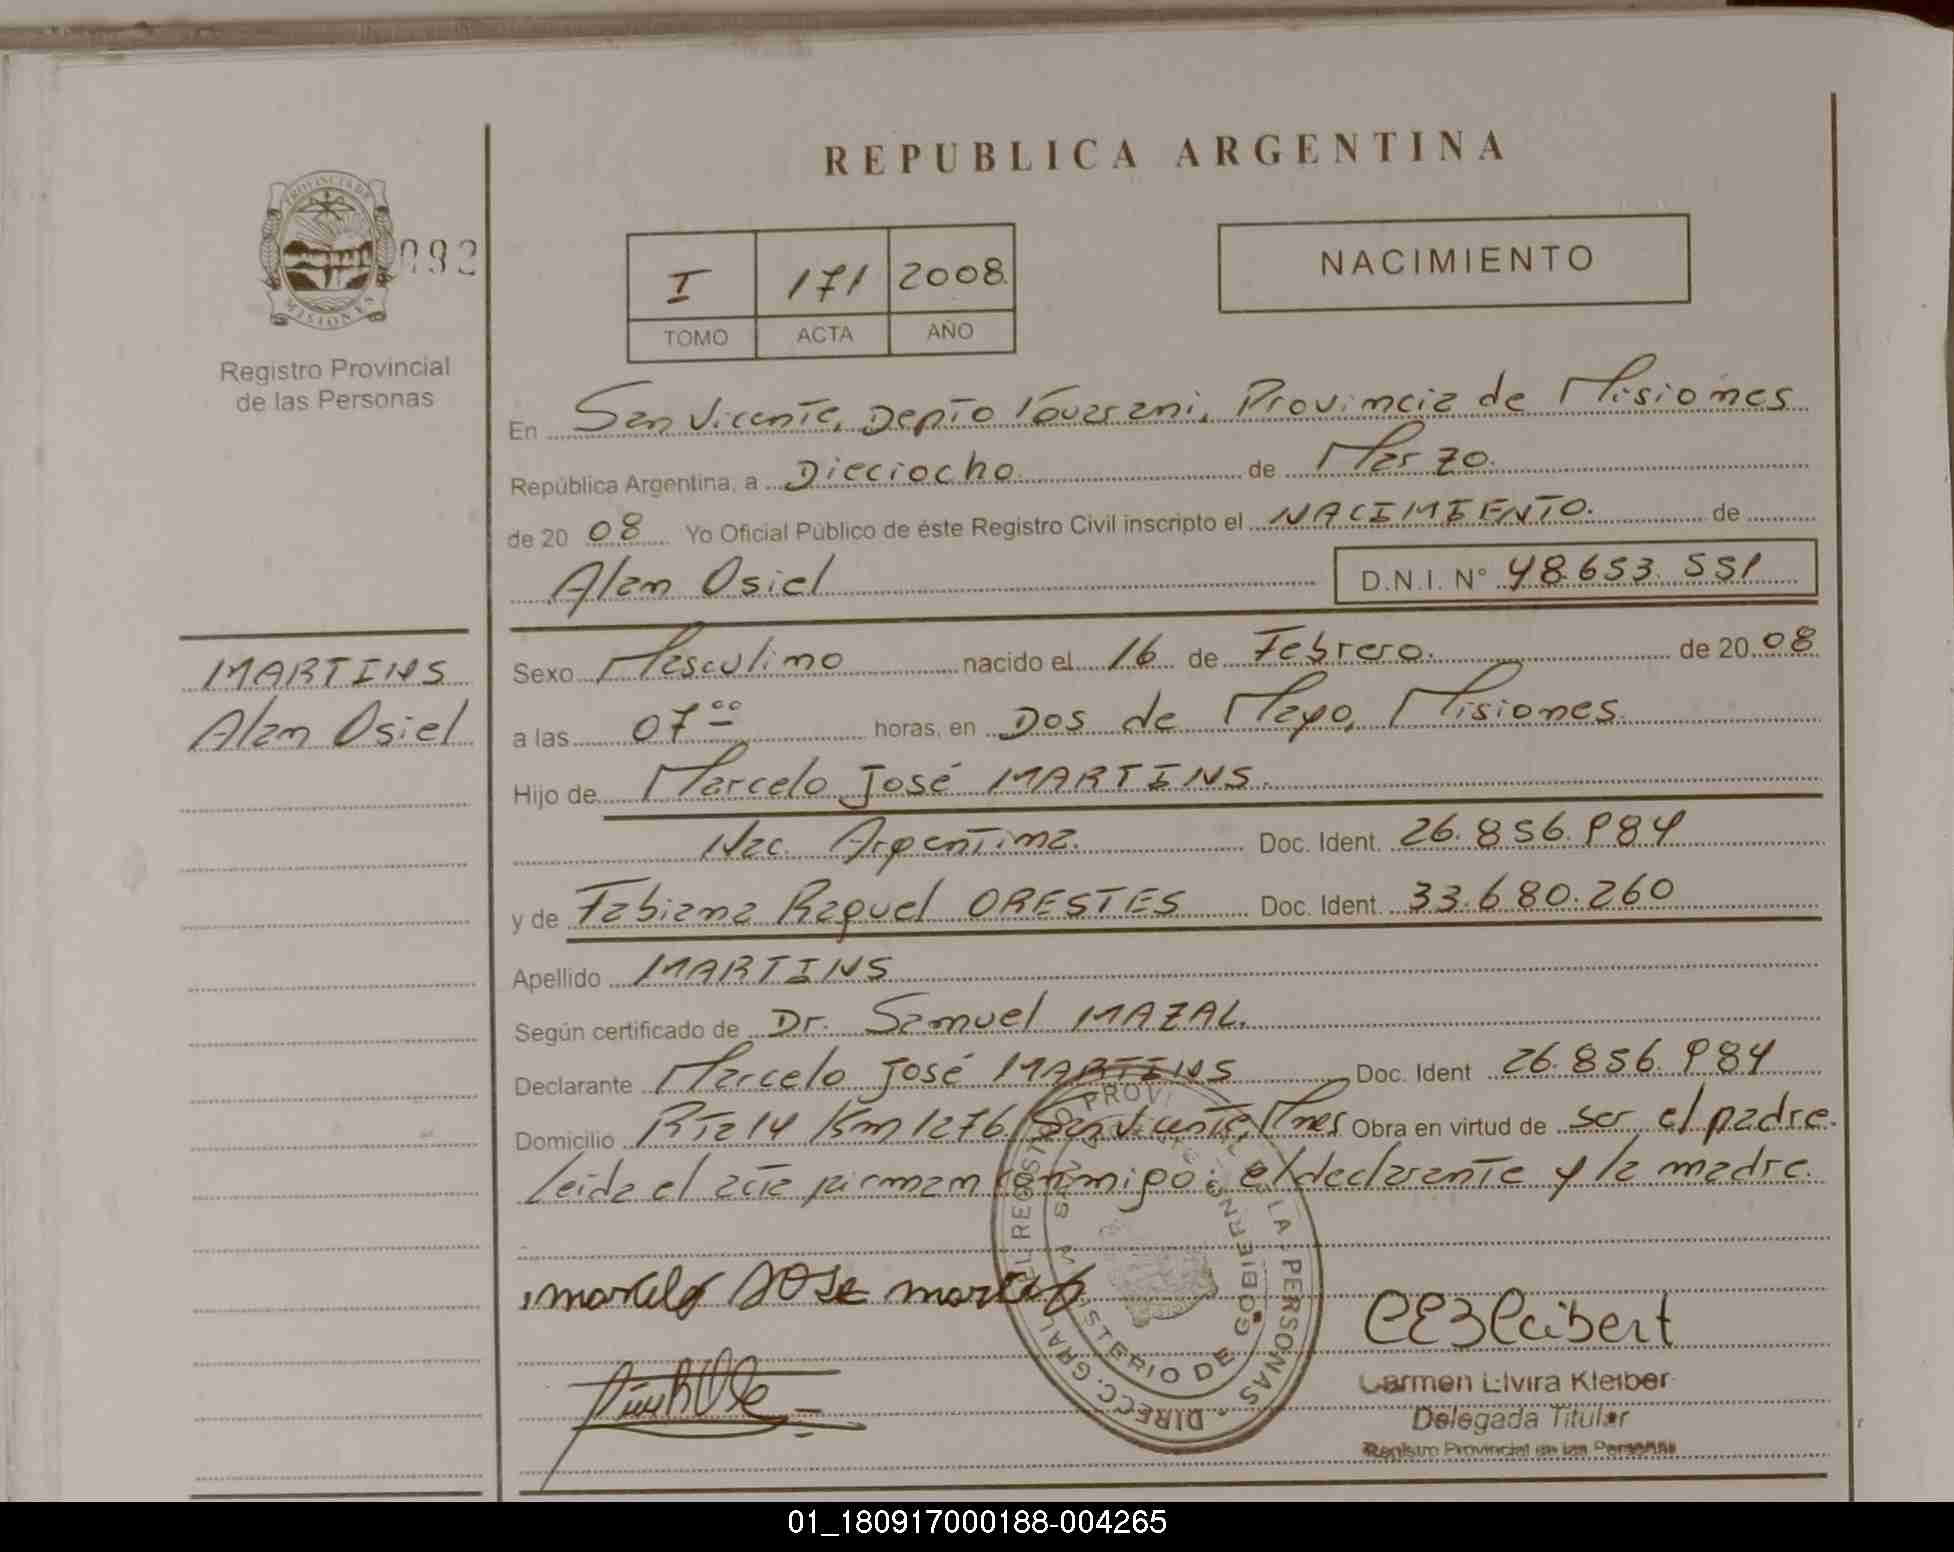 REPUBLICA ARGENTINA
PROVINCIA DE
MISIONES
092
Registro Provincial
de las Personas
I 171 2008
TOMO ACTA AÑO
NACIMIENTO
En San Vicente, Depto Guarani, Provincia de Misiones
República Argentina, a Dieciocho. de Marzo.
de 20 08 Yo Oficial Público de éste Registro Civil inscripto el NACIMIENTO. de
Alan Osiel D.N.I. N° 48.653.551
MARTINS
Alan Osiel
Sexo Masculino nacido el 16 de Febrero. de 20 08
a las 07 00 horas, en Dos de Mayo, Misiones.
Hijo de Marcelo José MARTINS.
Nac. Argentina. Doc. Ident. 26.856.984
y de Fabiana Raquel ORESTES Doc. Ident. 33.680.260
Apellido MARTINS
Según certificado de Dr. Samuel MAZAL.
Declarante Marcelo José MARTINS Doc. Ident 26.856.984
Domicilio Rta 14 Km 1276. San Vicente, Mnes Obra en virtud de ser el padre.
Leida el acta firman conmigo: el declarante y la madre.
marcelo JOSe martins
DIRECC. GRAL. DEL REGISTRO PROVINCIAL DE LA PERSONAS
MINISTERIO DE GOBIERNO
Carmen Elvira Kleiber
Delegada Titular
Registro Provincial de las Personas
01_180917000188-004265